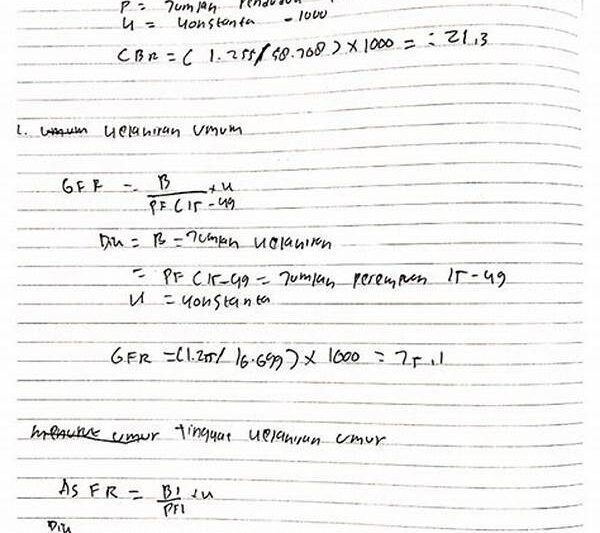 P = Jumlah Penduduk
K = Konstanta = 1000
CBR = ( 1.255/58.708 ) x 1000 = = 21,3
2. umum Kelahiran Umum
GFR = B / PF (15-49 x K
Dik = B = Jumlah Kelahiran
= PF (15-49 = Jumlah perempuan 15-49
K = Konstanta
GFR = (1.255/ 16.699) x 1000 = 75,1
menurut umur Tingkat Kelahiran Umur
AS FR = Bi / PFi x K
Dik